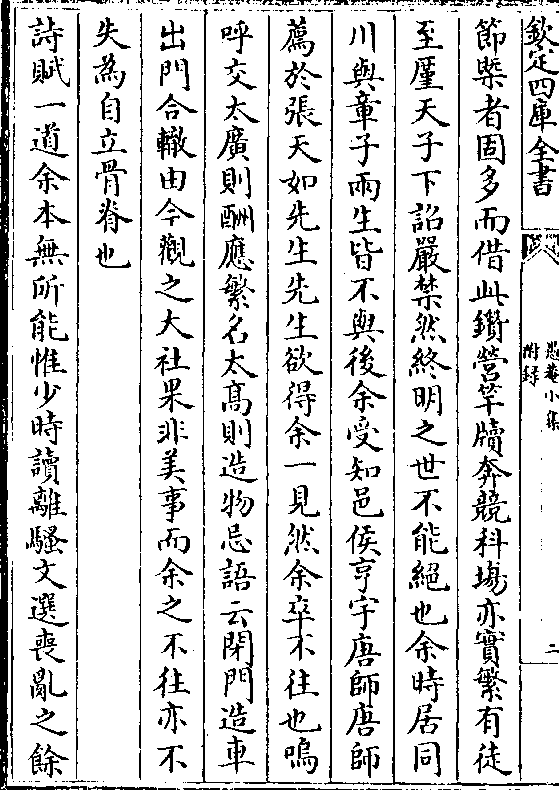 欽定四庫全書
愚菴小集
附録
二
節槩者固多而借此鑽營竿牘奔競科塲亦實繁有徒
至厪天子下詔嚴禁然終明之世不能絶也余時居同
川與章子兩生皆不與後余受知邑侯亨宇唐師唐師
薦於張天如先生先生欲得余一見然余卒不往也嗚
呼交太廣則酬應繁名太髙則造物忌語云閉門造車
出門合轍由今觀之大社果非美事而余之不往亦不
失為自立骨脊也
詩賦一道余本無所能惟少時讀離騷文選喪亂之餘